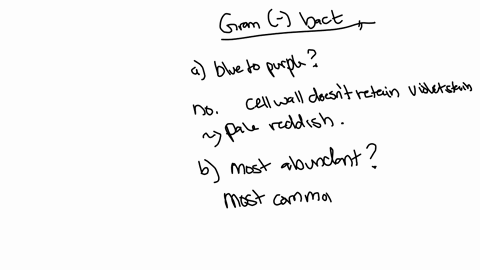 Gram (-) bact
a) blue to purple?
no. cell wall doesn't retain violet stain
~> pale reddish.
b) most abundant?
most commo